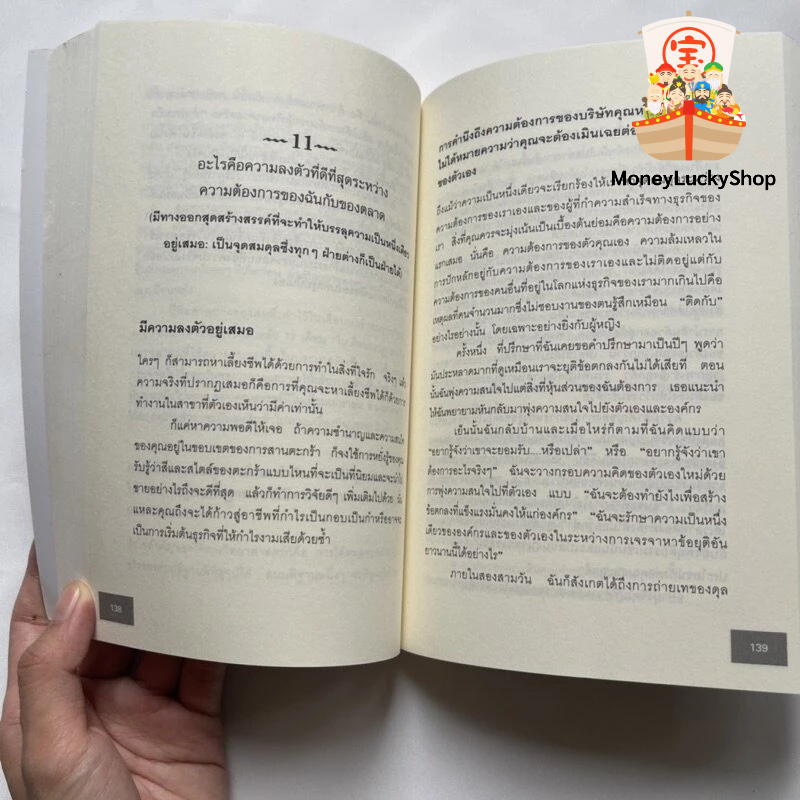 11
อะไรคือความลงตัวที่ดีที่สุดระหว่าง
ความต้องการของฉันกับของตลาด
(มีทางออกสุดสร้างสรรค์ที่จะทำให้บรรลุความเป็นหนึ่งเดียว
อยู่เสมอ: เป็นจุดสมดุลซึ่งทุกๆ ฝ่ายต่างก็เป็นฝ่ายได้)
มีความลงตัวอยู่เสมอ
ใครๆ ก็สามารถหาเลี้ยงชีพได้ด้วยการทำในสิ่งที่ใจรัก จริงๆ แล้ว
ความจริงที่ปรากฏเสมอก็คือการที่คุณจะหาเลี้ยงชีพได้ก็ด้วยการ
ทำงานในสาขาที่ตัวเองเห็นว่ามีค่าเท่านั้น
ก็แค่หาความพอดีให้เจอ ถ้าความชำนาญและความสนใจ
ของคุณอยู่ในขอบเขตของการสานตะกร้า ก็จงใช้การหยั่งรู้ของคุณ
รับรู้ว่าสีและสไตล์ของตะกร้าแบบไหนที่จะเป็นที่นิยมและจะนำไป
ขายอย่างไรถึงจะดีที่สุด แล้วก็ทำการวิจัยดีๆ เพิ่มเติมไปด้วย นั่น
แหละคุณถึงจะได้ก้าวสู่อาชีพที่กำไรเป็นกอบเป็นกำหรืออาจจะ
เป็นการเริ่มต้นธุรกิจที่ให้กำไรงามเสียด้วยซ้ำ
138
การคำนึงถึงความต้องการของบริษัทคุณ
ไม่ได้หมายความว่าคุณจะต้องเมินเฉยต่อ
ของตัวเอง
ถึงแม้ว่าความเป็นหนึ่งเดียวจะเรียกร้องให้เรา
ความต้องการของเราเองและของผู้ที่กำความสำเร็จทางธุรกิจของ
เรา สิ่งที่คุณควรจะมุ่งเน้นเป็นเบื้องต้นย่อมคือความต้องการอย่าง
แรกเสมอ นั่นคือ ความต้องการของตัวคุณเอง ความล้มเหลวใน
การปักหลักอยู่กับความต้องการของเราเองและไม่ติดอยู่แต่กับ
ความต้องการของคนอื่นที่อยู่ในโลกแห่งธุรกิจของเรามากเกินไปคือ
เหตุผลที่คนจำนวนมากซึ่งไม่ชอบงานของตนรู้สึกเหมือน "ติดกับ"
อย่างไรอย่างนั้น โดยเฉพาะอย่างยิ่งกับผู้หญิง
ครั้งหนึ่ง ที่ปรึกษาที่ฉันเคยขอคำปรึกษามาเป็นปีๆ พูดว่า
มันประหลาดมากที่ดูเหมือนเราจะยุติข้อตกลงกันไม่ได้เสียที ตอน
นั้นฉันพุ่งความสนใจไปแต่สิ่งที่หุ้นส่วนของฉันต้องการ เธอแนะนำ
ให้ฉันพยายามหันกลับมาพุ่งความสนใจไปยังตัวเองและองค์กร
เย็นนั้นฉันกลับบ้านและเมื่อไหร่ก็ตามที่ฉันคิดแบบว่า
"อยากรู้จังว่าเขาจะยอมรับ....หรือเปล่า" หรือ "อยากรู้จังว่าเขา
ต้องการอะไรจริงๆ" ฉันจะวางกรอบความคิดของตัวเองใหม่ด้วย
การพุ่งความสนใจไปที่ตัวเอง แบบ "ฉันจะต้องทำยังไงเพื่อสร้าง
ข้อตกลงที่แข็งแรงมั่นคงให้แก่องค์กร" "ฉันจะรักษาความเป็นหนึ่ง
เดียวขององค์กรและของตัวเองในระหว่างการเจรจาหาข้อยุติอัน
ยาวนานนี้ได้อย่างไร"
ภายในสองสามวัน ฉันก็สังเกตได้ถึงการถ่ายเทของดุล
139
宝
MoneyLuckyShop